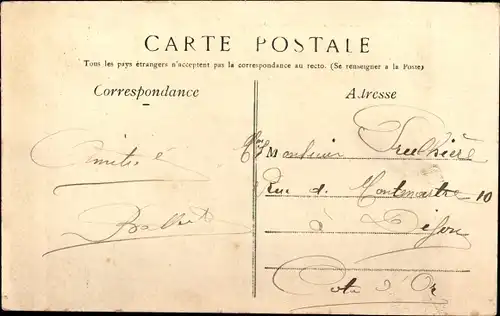 CARTE POSTALE
Tous les pays étrangers n'acceptent pas la correspondance au recto. (Se renseigner a la Poste)
Correspondance
Adresse
Amitié
Monsieur
Rue d. Montmartre 10
à Dijon
Cote d'Or